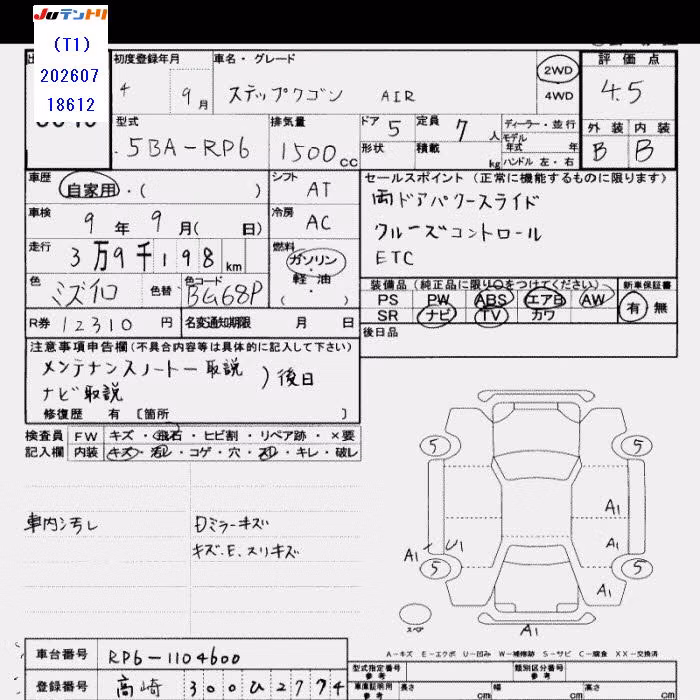 Juテントリ
(T1)
202607
18612
初度登録年月
車名・グレード
2WD
4WD
評価点
4 9月
ステップワゴン AIR
4.5
型式
排気量
ドア 5
定員 7人
ディーラー・並行
モデル年式 年
ハンドル 左・右
外装 内装
5BA-RP6
1500cc
形状
積載 kg
B B
車歴
自家用・( )
シフト
AT
セールスポイント (正常に機能するものに限ります)
両ドアパワースライド
車検
9年9月( 日)
冷房
AC
クルーズコントロール
ETC
走行
3万9千198km
燃料
ガソリン
軽油
( )
色
ミズイロ
色替
色コード
BG68P
装備品 (純正品に限り○をつけてください)
新車保証書
PS PW ABS エアB AW
有・無
SR ナビ TV カワ
R券 12310円
名変通知期限 月 日
後日品
注意事項申告欄 (不具合内容等は具体的に記入して下さい)
メンテナンスノート一取説
ナビ取説
)後日
修復歴 有 〔箇所 〕
検査員
記入欄
FW キズ・飛石・ヒビ割・リペア跡・×要
内装 キズ・汚レ・コゲ・穴・スレ・キレ・破レ
車内汚し
Dミラーキズ
キズ.E.スリキズ
5
5
A1
A1
A1
U1
5
5
A1
スペア
A1
A-キズ E-エクボ U-凹み W-補修跡 S-サビ C-腐食 XX-交換済
車台番号
RP6-1104600
登録番号
高崎 300ひ2774
型式指定番号 参考
類別区分番号 参考
車庫証明用 参考
長さ cm
幅 cm
高さ cm